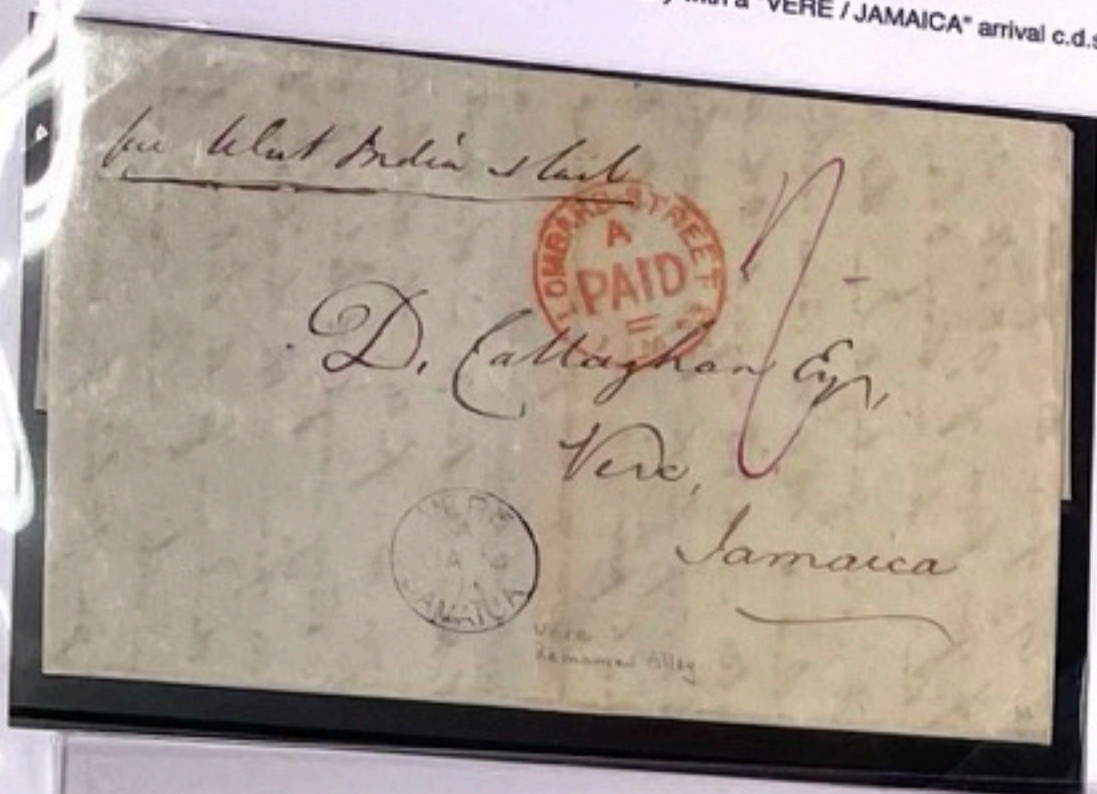 "VERE / JAMAICA" arrival c.d.s
per West India Mail
LOMBARD STREET
A
PAID
D. Callaghan Esqr,
Vere,
Jamaica
VERE
JA
JAMAICA
Vere
Renamed Alley